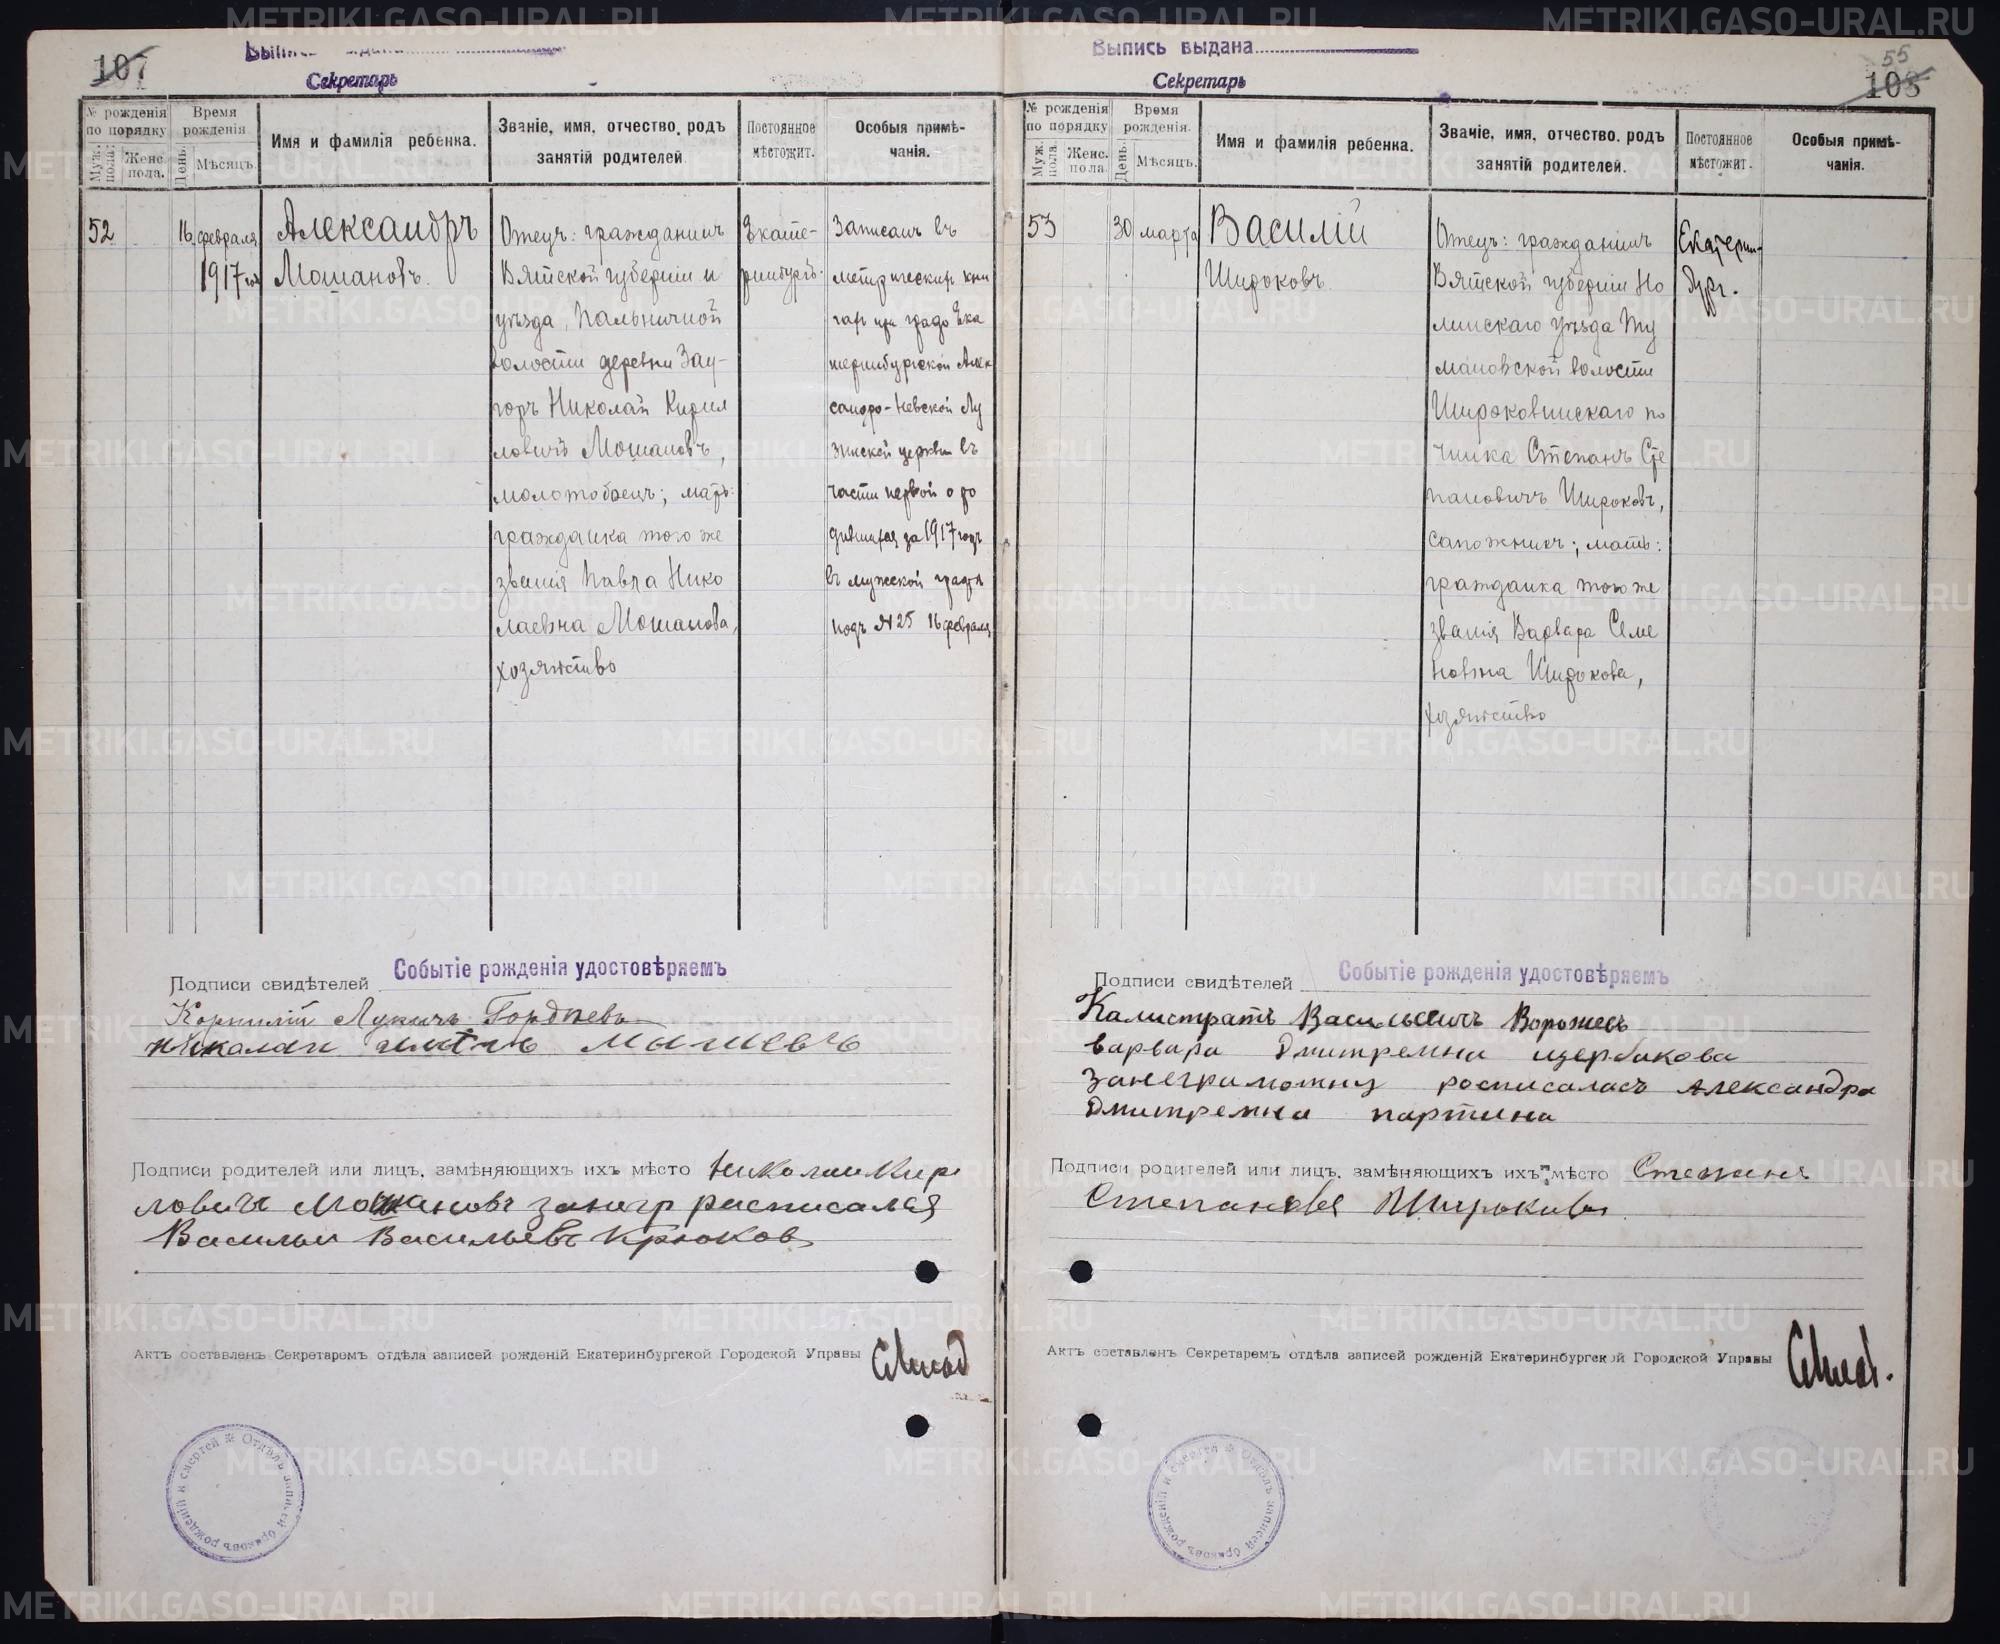 107
Выпись выдана
Секретарь
№ рожденія по порядку
Муж. пола.
Женс. пола.
Время рожденія
День.
Мѣсяцъ.
Имя и фамилія ребенка.
Званіе, имя, отчество, родъ занятій родителей.
Постоянное мѣстожит.
Особыя примѣчанія.
52
16 февраля
1917 год
Александръ
Мошановъ.
Отецъ: гражданинъ
Вятской губерніи и
уѣзда, Пальничной
волости деревни Зау-
горъ Николай Кирил
ловичъ Мошановъ,
молотобоецъ; мать:
гражданка того же
званія Павла Нико
лаевна Мошанова,
хозяйство
Екате-
ринбургъ.
Записанъ въ
метрическихъ кни
гахъ при градо Ека
теринбургской Алек
сандро-Невской Лу
зинской церкви въ
части первой о ро
дившихся за 1917 годъ
въ мужской графѣ
подъ №25 16 февраля
Подписи свидѣтелей
Событіе рожденія удостовѣряемъ
Корнилій Лукичъ Гордѣевъ
Николай
Подписи родителей или лицъ, замѣняющихъ ихъ мѣсто Николай Кири
ловичъ Мошановъ занегр расписался
Василий Васильевъ Крюковъ
Актъ составленъ Секретаремъ отдѣла записей рожденій Екатеринбургской Городской Управы
Отдѣлъ записей браковъ рожденій и смертей
55
108
Выпись выдана
Секретарь
№ рожденія по порядку
Муж. пола.
Женс. пола.
Время рожденія.
День.
Мѣсяцъ.
Имя и фамилія ребенка.
Званіе, имя, отчество, родъ занятій родителей.
Постоянное мѣстожит.
Особыя примѣчанія.
53
30 марта
Василій
Широковъ.
Отецъ: гражданинъ
Вятской губерніи Но
линскаго уѣзда Ту
мановской волости
Широковинскаго по
чинка Степанъ Сте
пановичъ Широковъ,
сапожникъ; мать:
гражданка того же
званія Варвара Семе
новна Широкова,
хозяйство
Екатерин-
бург.
Подписи свидѣтелей
Событіе рожденія удостовѣряемъ
Калистратъ Васильевичъ
варвара Дмитремна щербакова
занеграмотну росписалась Александра
Дмитремна партина
Подписи родителей или лицъ, замѣняющихъ ихъ мѣсто Степанъ
Степановъ Широковъ
Актъ составленъ Секретаремъ отдѣла записей рожденій Екатеринбургской Городской Управы
Отдѣлъ записей браковъ рожденій и смертей
METRIKI.GASO-URAL.RU